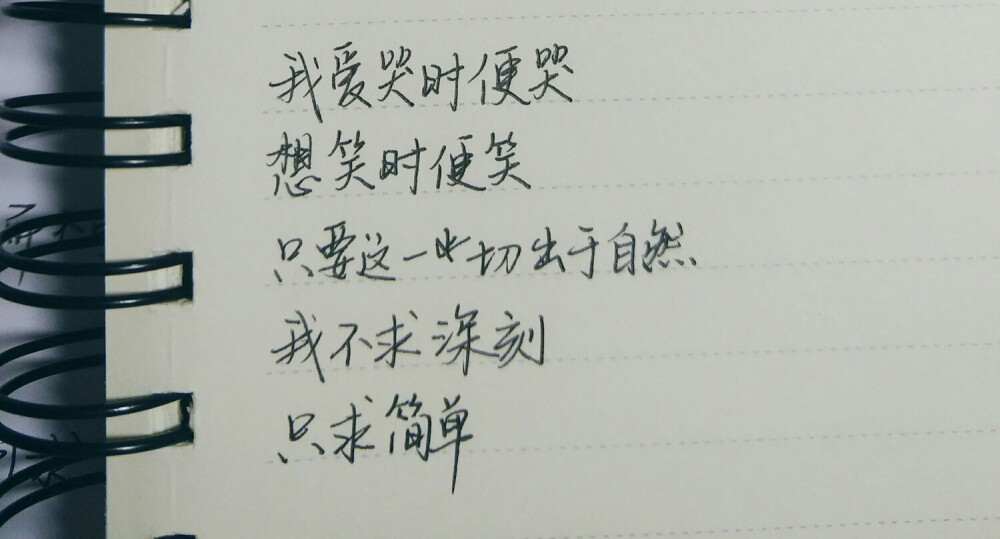 我爱哭时便哭
想笑时便笑
只要这一切出于自然
我不求深刻
只求简单